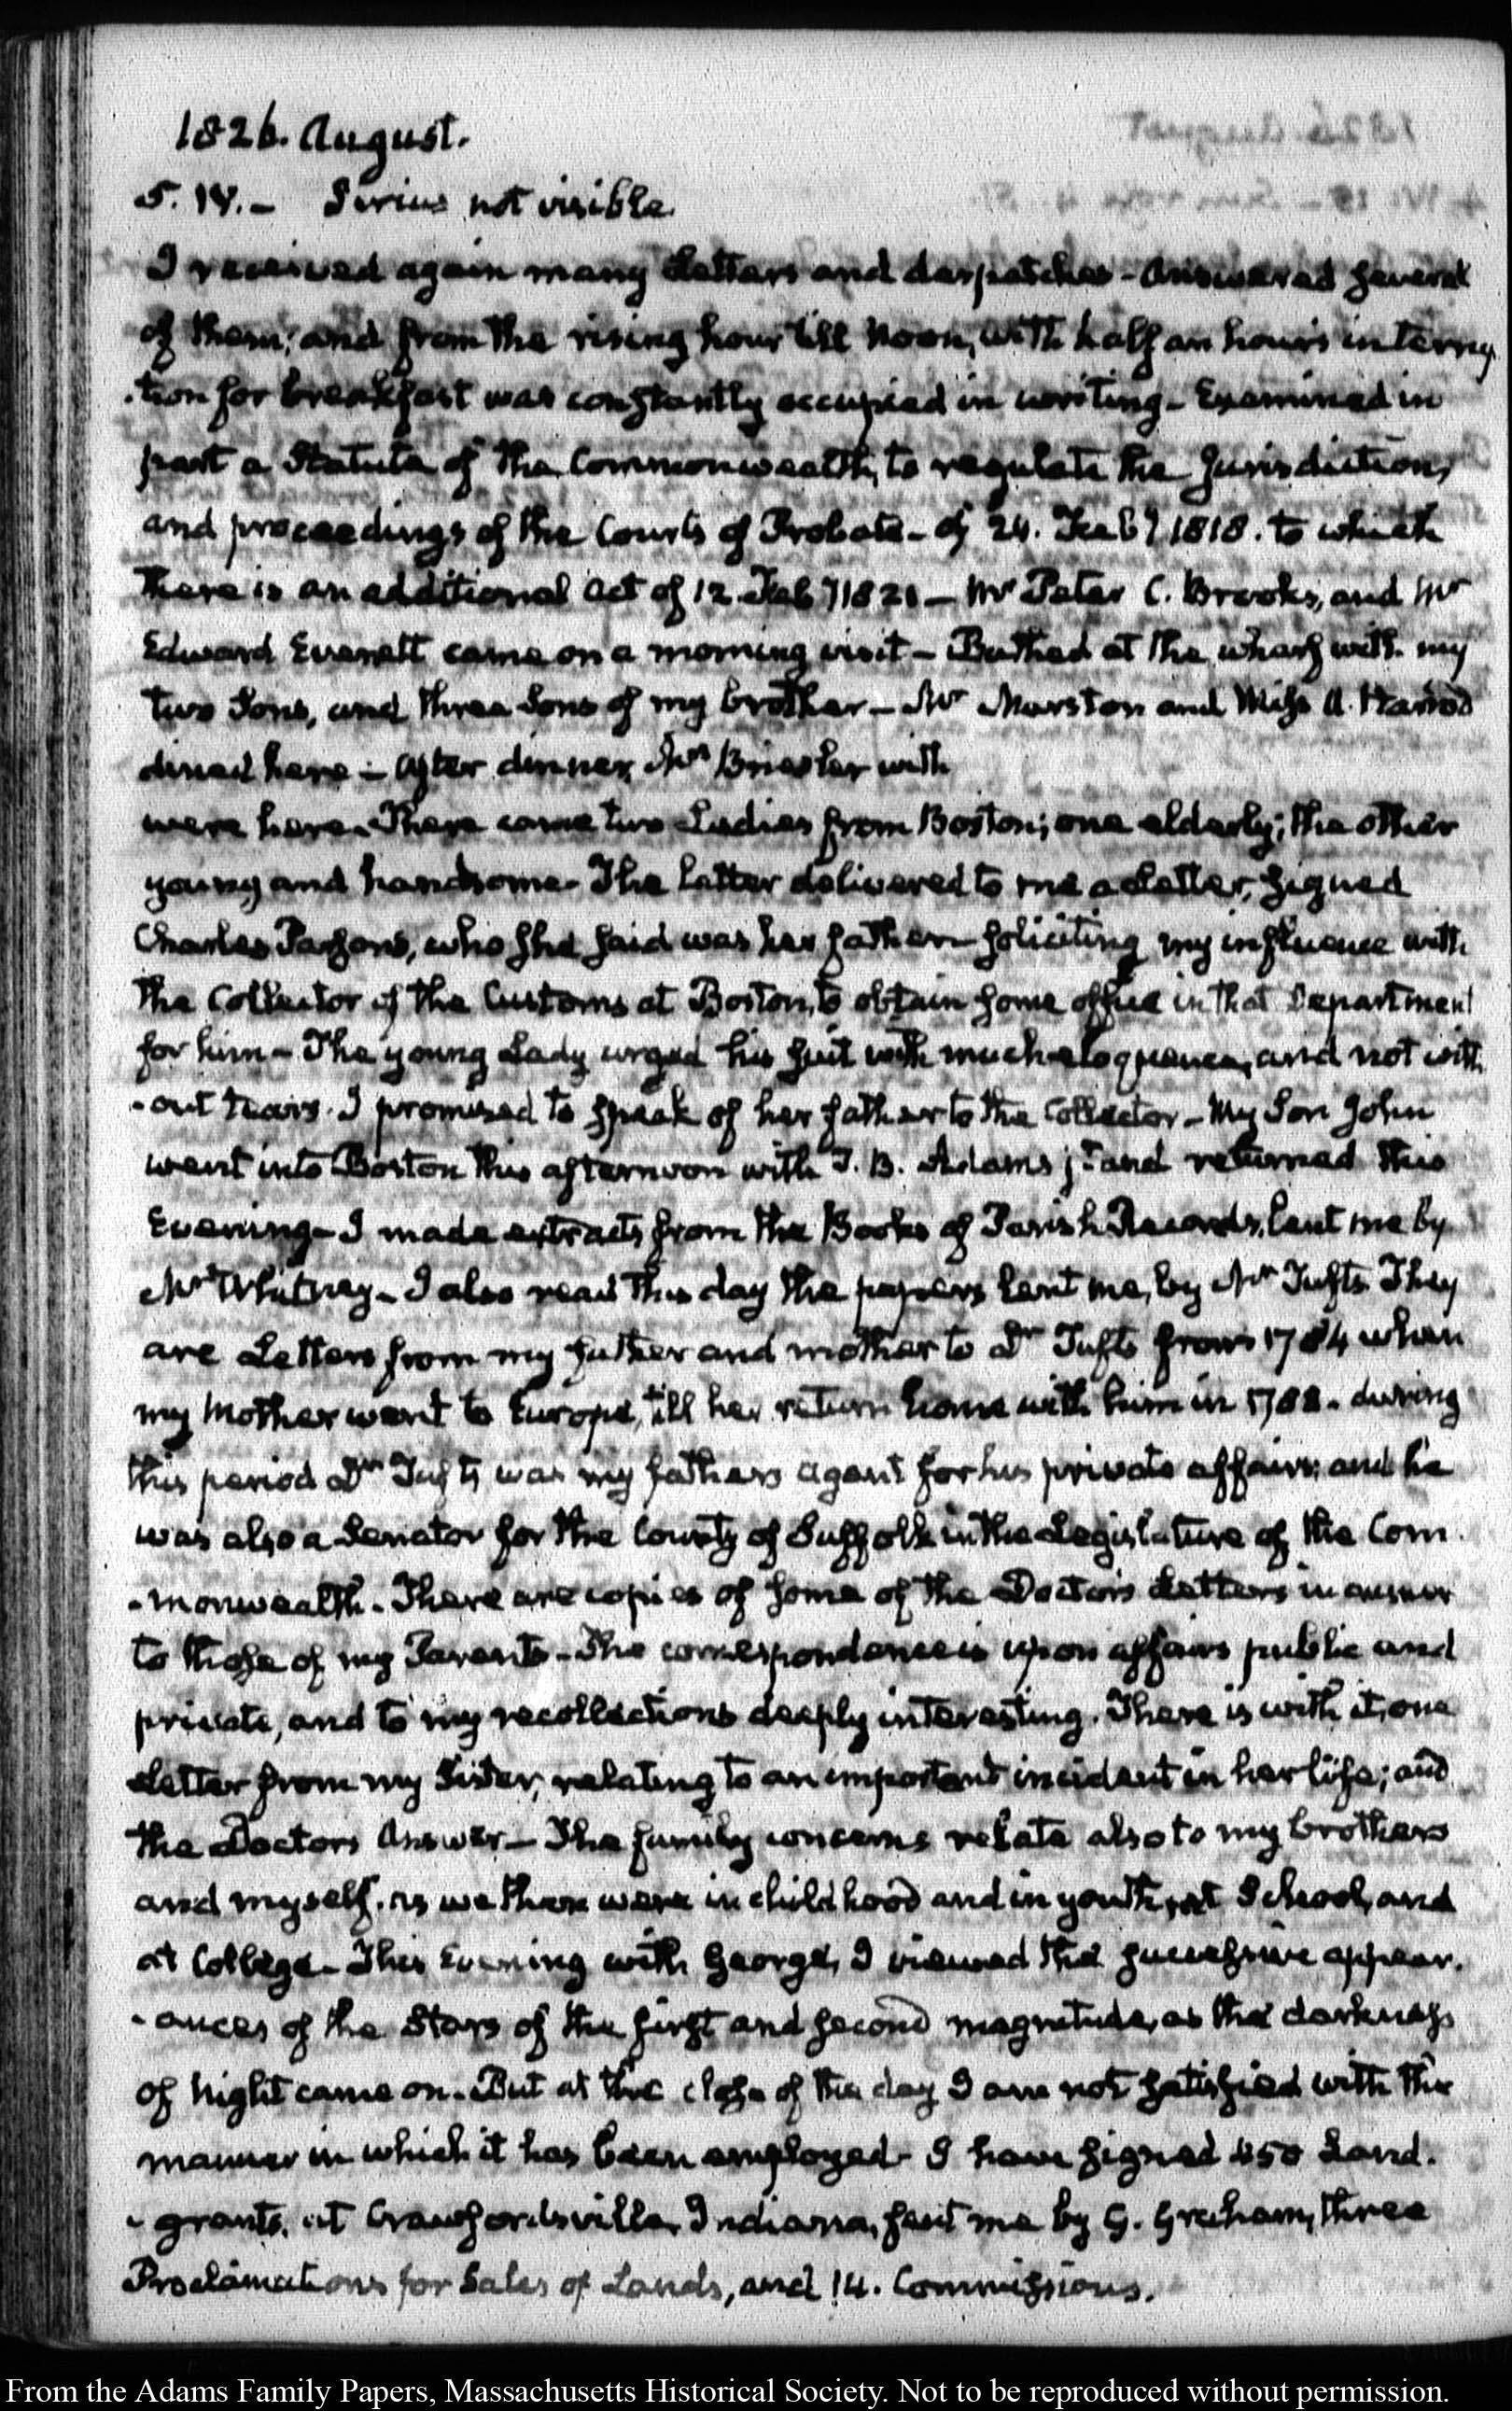 1826. August.
5. IV. — Sirius not visible.
I received again many Letters and despatches - Answered several
of them; and from the rising hour till Noon, with half an hour's interrup
-tion for breakfast was constantly occupied in writing - Examined in
part a Statute of the Commonwealth, to regulate the Jurisdiction,
and proceedings of the Courts of Probate - of 24. Feby 1818. to which
there is an additional Act of 12. Feby 1821 — Mr Peter C. Brooks, and Mr
Edward Everett came on a morning visit — Bathed at the wharf with my
two Sons, and three Sons of my brother — Mr Marston and Miss A. Harrod
dined here — After dinner, Mrs Briesler with
were here. There came two Ladies from Boston; one elderly; the other
young and handsome. The latter delivered to me a Letter, signed
Charles Parsons, who she said was her father — soliciting my influence with
the Collector of the Customs at Boston, to obtain some office in that Department
for him — The young Lady urged his suit with much eloquence, and not with
-out tears. I promised to speak of her father to the Collector — My Son John
went into Boston this afternoon with T. B. Adams jr and returned this
Evening — I made extracts from the Books of Parish Records, lent me by
Mr Whitney — I also read this day the papers lent me, by Mr Tufts. They
are Letters from my father and mother to Dr Tufts from 1784 when
my Mother went to Europe, till her return home with him in 1788. during
this period Dr Tufts was my father's agent for his private affairs; and he
was also a Senator for the County of Suffolk in the Legislature of the Com
-monwealth. There are copies of some of the Doctor's Letters in answer
to those of my Parents — The correspondence is upon affairs public and
private, and to my recollections deeply interesting. There is with it, one
Letter from my Sister, relating to an important incident in her life; and
the Doctors Answer — The family concerns relate also to my brothers
and myself. as we then were in childhood and in youth, at School, and
at College — This Evening with George, I viewed the successive appear.
-ances of the Stars of the first and second magnitude, as the darkness
of Night came on. But at the close of the day I am not satisfied with the
manner in which it has been employed — I have signed 450 Land.
-grants, at Crawfordsville, Indiana, sent me by G. Graham, three
Proclamations for Sales of Lands, and 14. Commissions.
From the Adams Family Papers, Massachusetts Historical Society. Not to be reproduced without permission.